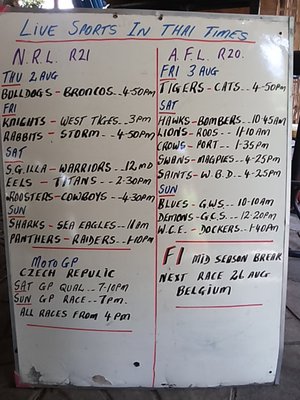 LIVE SPORTS IN THAI TIMES
N.R.L. R21
THU 2 AUG
BULLDOGS - BRONCOS.. 4-50pm
FRI
KNIGHTS - WEST TIGES. 3pm
RABBITS - STORM.. 4-50pm
SAT
S.G. ILLA - WARRIORS.. 12 md
EELS - TITANS.. 2-30pm
ROOSTERS-COWBOYS.. 4-30pm
SUN
SHARKS - SEA EAGLES.. 11am
PANTHERS - RAIDERS.. 1-10pm
MOTO GP
CZECH REPULIC
SAT GP QUAL.. 7-10pm
SUN GP RACE.. 7pm.
ALL RACES FROM 4 pm
A.F.L. R20.
FRI 3 AUG
TIGERS-CATS.. 4-50pm
SAT
HAWKS-BOMBERS.. 10 45am
LIONS-ROOS.. 11-10am
CROWS-PORT.. 1-35pm
SWANS-MAGPIES.. 4-25pm
SAINTS - W.B.D.. 4-25pm
SUN
BLUES - G.W.S.. 10-10am
DEMONS-G.C.S.. 12-20pm
W.C.E. - DOCKERS.. 1-40pm
F1 MID SEASON BREAK
NEXT RACE 26 AUG
BELGIUM